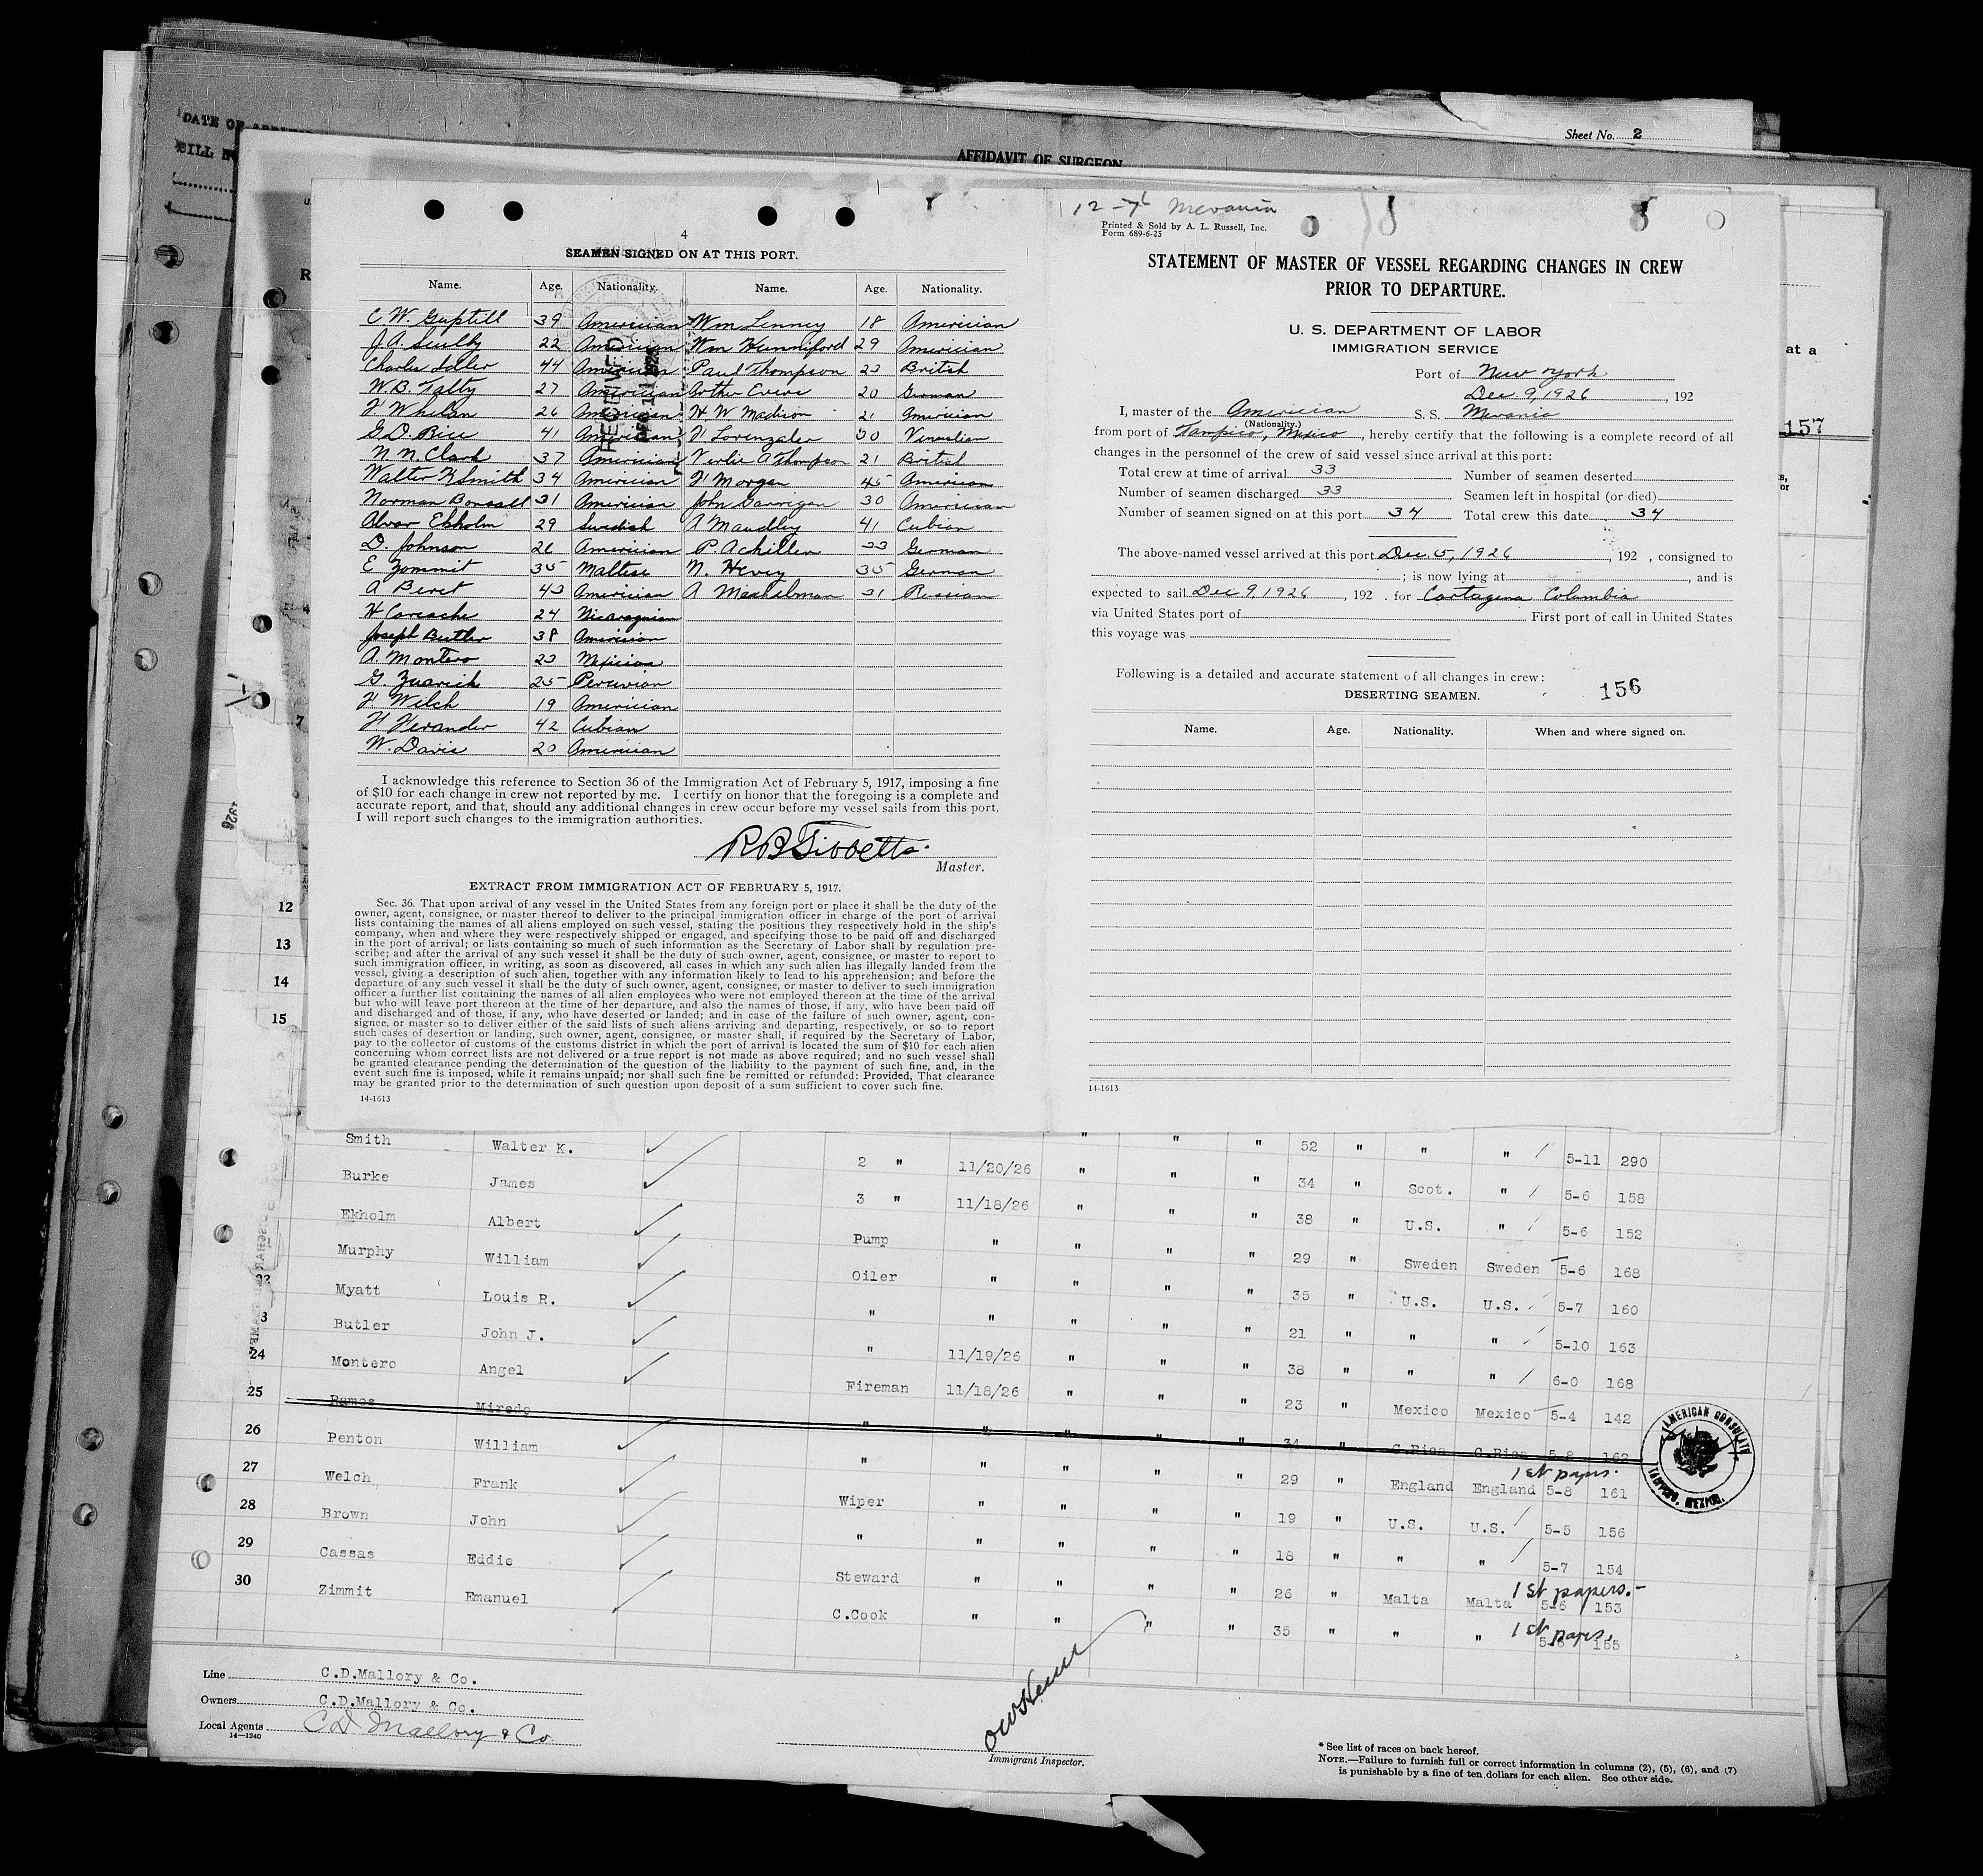 DATE OF
BILL
Sheet No. 2
AFFIDAVIT OF SURGEON
at a
157
4
SEAMEN SIGNED ON AT THIS PORT.
Name. Age. Nationality. Name. Age. Nationality.
C. W. Guptill 39 Americian Wm Lenney 18 Americian
J. A. Scully 22 Americian Wm Hunniford 29 Americian
Charles Soller 44 Americian Paul Thompson 23 British
W. B. Talty 27 Americian Arther Evers 20 German
F Whelan 26 Americian H W Madison 21 Americian
G. D. Rice 41 Americian F Lorenzalev 30 Venuslian
N. N. Clark 37 Americian Verlie A Thompson 21 British
Walter K Smith 34 Americian F Morgan 45 American
Norman Bonsall 31 Americian John Garrigan 30 Americian
Alvar Ekholm 29 Swedish A Maudley 41 Cubian
D. Johnson 26 Americian P Achillen 33 German
E Zommit 35 Maltese N. Hevey 35 German
A Peret 43 Americian A Mashelman 31 Russian
H Carcache 24 Nicaraguian
Joseph Butler 38 Americian
A. Montero 23 Mexician
G. Zuarich 25 Peruvian
F Welch 19 Americian
F Ferander 42 Cubian
W. Davis 20 Americian
RECEIVED
DEC 11 1926
I acknowledge this reference to Section 36 of the Immigration Act of February 5, 1917, imposing a fine
of $10 for each change in crew not reported by me. I certify on honor that the foregoing is a complete and
accurate report, and that, should any additional changes in crew occur before my vessel sails from this port,
I will report such changes to the immigration authorities.
R B Tibbetts.
Master.
EXTRACT FROM IMMIGRATION ACT OF FEBRUARY 5, 1917.
Sec. 36. That upon arrival of any vessel in the United States from any foreign port or place it shall be the duty of the
owner, agent, consignee, or master thereof to deliver to the principal immigration officer in charge of the port of arrival
lists containing the names of all aliens employed on such vessel, stating the positions they respectively hold in the ship's
company, when and where they were respectively shipped or engaged, and specifying those to be paid off and discharged
in the port of arrival; or lists containing so much of such information as the Secretary of Labor shall by regulation pre-
scribe; and after the arrival of any such vessel it shall be the duty of such owner, agent, consignee, or master to report to
such immigration officer, in writing, as soon as discovered, all cases in which any such alien has illegally landed from the
vessel, giving a description of such alien, together with any information likely to lead to his apprehension; and before the
departure of any such vessel it shall be the duty of such owner, agent, consignee, or master to deliver to such immigration
officer a further list containing the names of all alien employees who were not employed thereon at the time of the arrival
but who will leave port thereon at the time of her departure, and also the names of those, if any, who have been paid off
and discharged and of those, if any, who have deserted or landed; and in case of the failure of such owner, agent, con-
signee, or master so to deliver either of the said lists of such aliens arriving and departing, respectively, or so to report
such cases of desertion or landing, such owner, agent, consignee, or master shall, if required by the Secretary of Labor,
pay to the collector of customs of the customs district in which the port of arrival is located the sum of $10 for each alien
concerning whom correct lists are not delivered or a true report is not made as above required; and no such vessel shall
be granted clearance pending the determination of the question of the liability to the payment of such fine, and, in the
event such fine is imposed, while it remains unpaid; nor shall such fine be remitted or refunded: Provided, That clearance
may be granted prior to the determination of such question upon deposit of a sum sufficient to cover such fine.
14-1613
12-76 Mevania
Printed & Sold by A. L. Russell, Inc.
Form 689-6-25
STATEMENT OF MASTER OF VESSEL REGARDING CHANGES IN CREW
PRIOR TO DEPARTURE.
U. S. DEPARTMENT OF LABOR
IMMIGRATION SERVICE
Port of New York
Dec. 9, 1926, 192
I, master of the Americian S. S. Mevania
(Nationality.)
from port of Tampico, Mexico, hereby certify that the following is a complete record of all
changes in the personnel of the crew of said vessel since arrival at this port:
Total crew at time of arrival 33 Number of seamen deserted
Number of seamen discharged 33 Seamen left in hospital (or died)
Number of seamen signed on at this port 34 Total crew this date 34
The above-named vessel arrived at this port Dec. 5, 1926, 192 , consigned to
; is now lying at , and is
expected to sail Dec 9, 1926, 192 . for Cartagena Columbia
via United States port of First port of call in United States
this voyage was
Following is a detailed and accurate statement of all changes in crew:
DESERTING SEAMEN. 156
Name. Age. Nationality. When and where signed on.
14-1613
12
13
14
15
Smith Walter K. 2 " 11/20/26 " " " 34 " Scot. " 5-6 158
Burke James 3 " 11/18/26 " " " 38 " U.S. " 5-6 152
Ekholm Albert Pump " " " " 29 " Sweden Sweden 5-6 168
Murphy William Oiler " " " " 35 " U.S. U.S. 5-7 160
Myatt Louis R. " " " " " 21 " " " 5-10 163
Butler John J. " 11/19/26 " " " 38 " " " 6-0 168
24 Montero Angel Fireman 11/18/26 " " " 23 " Mexico Mexico 5-4 142
25 Ramos Miredo " " " " " 34 " C.Rica C.Rica 5-8 162
26 Penton William " " " " " 29 " England England 1st papers. 5-8 161
27 Welch Frank Wiper " " " " 19 " U.S. U.S. 5-5 156
28 Brown John " " " " " 18 " " " 5-7 154
29 Cassas Eddie Steward " " " " 26 " Malta Malta 1st papers.- 5-6 153
30 Zimmit Emanuel C.Cook " " " " 35 " " " 1st papers. 155
AMERICAN CONSULATE
TAMPICO, MEXICO.
Line C.D.Mallory & Co.
Owners C.D.Mallory & Co.
Local Agents C D Mallory & Co
14-1240
Immigrant Inspector.
* See list of races on back hereof.
NOTE.—Failure to furnish full or correct information in columns (2), (5), (6), and (7)
is punishable by a fine of ten dollars for each alien. See other side.